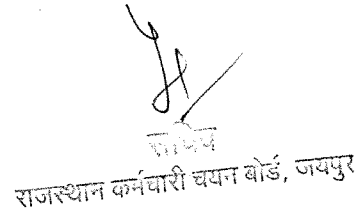 सचिव
राजस्थान कर्मचारी चयन बोर्ड, जयपुर